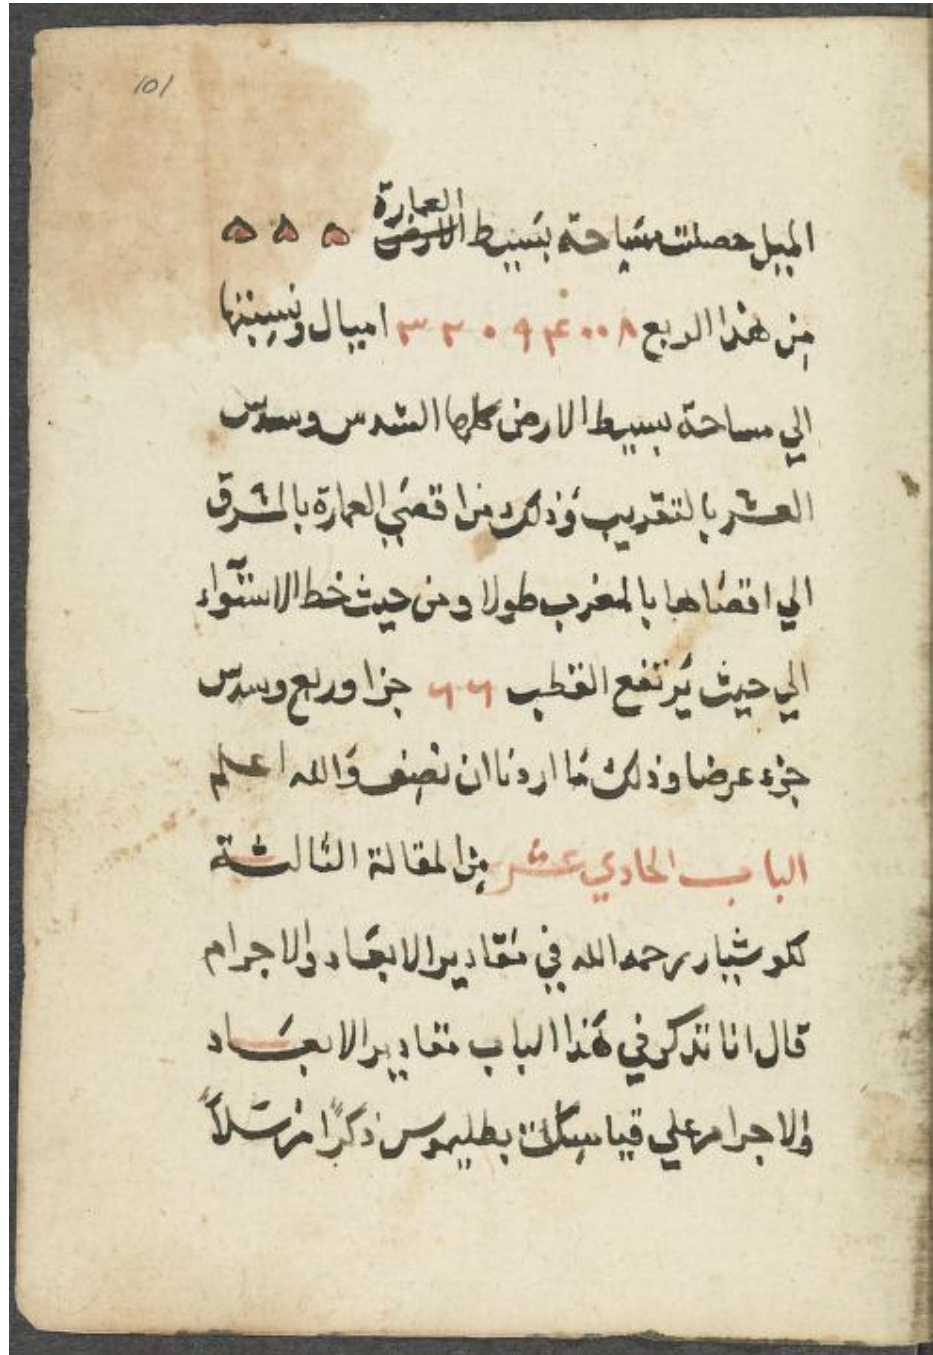 101
الميل حصلت مساحة بسيط العمارة ه ه ه
من هذا الربع ٣٢٠٩٤٠٠٨ اميال ونسبتها
الي مساحة بسيط الارض كلها السدس وسدس
العشر بالتقريب وذلك من اقصي العمارة بالمشرق
الي اقصاها بالمغرب طولا ومن حيث خط الاستوآء
الي حيث يرتفع القطب ٦٦ جزا وربع وسدس
جزء عرضا وذلك ما اردنا ان نصف والله اعلم
الباب الحادي عشر من المقالة الثالثة
لكوشيار رحمه الله في مقادير الابعاد والاجرام
قال انا نذكر في هذا الباب مقادير الابعاد
والاجرام علي قياسات بطليموس ذكرًا مرسلاً